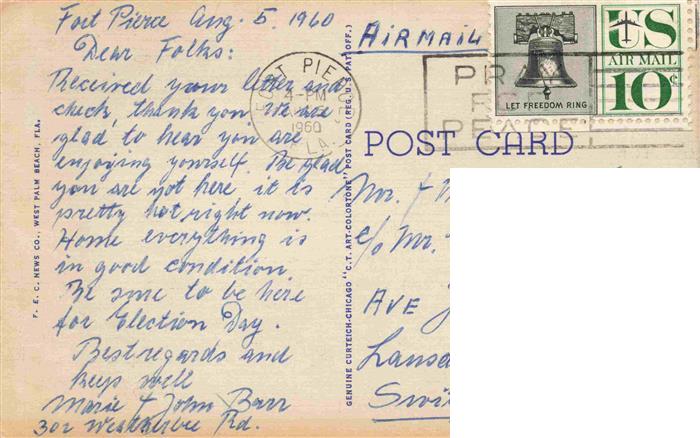 Fort Pierce Aug. 5, 1960
Dear Folks:
Received your letter and
check, thank you. We are
glad to hear you are
enjoying yourself. Be glad
you are not here it is
pretty hot right now.
Home everything is
in good condition.
Be sure to be here
for Election Day.
Best regards and
keep well
Marie & John Barr
302 Weatherbee Rd.
F. E. C. NEWS CO., WEST PALM BEACH, FLA.
GENUINE CURTEICH-CHICAGO "C. T. ART-COLORTONE" POST CARD (REG. U. S. PAT. OFF.)
AIRMAIL
FORT PIERCE
4-PM
1960
FLA.
PRAY
FOR
PEACE
LET FREEDOM RING
US
AIR MAIL
10¢
POST CARD
Mr. &
c/o Mr.
Ave